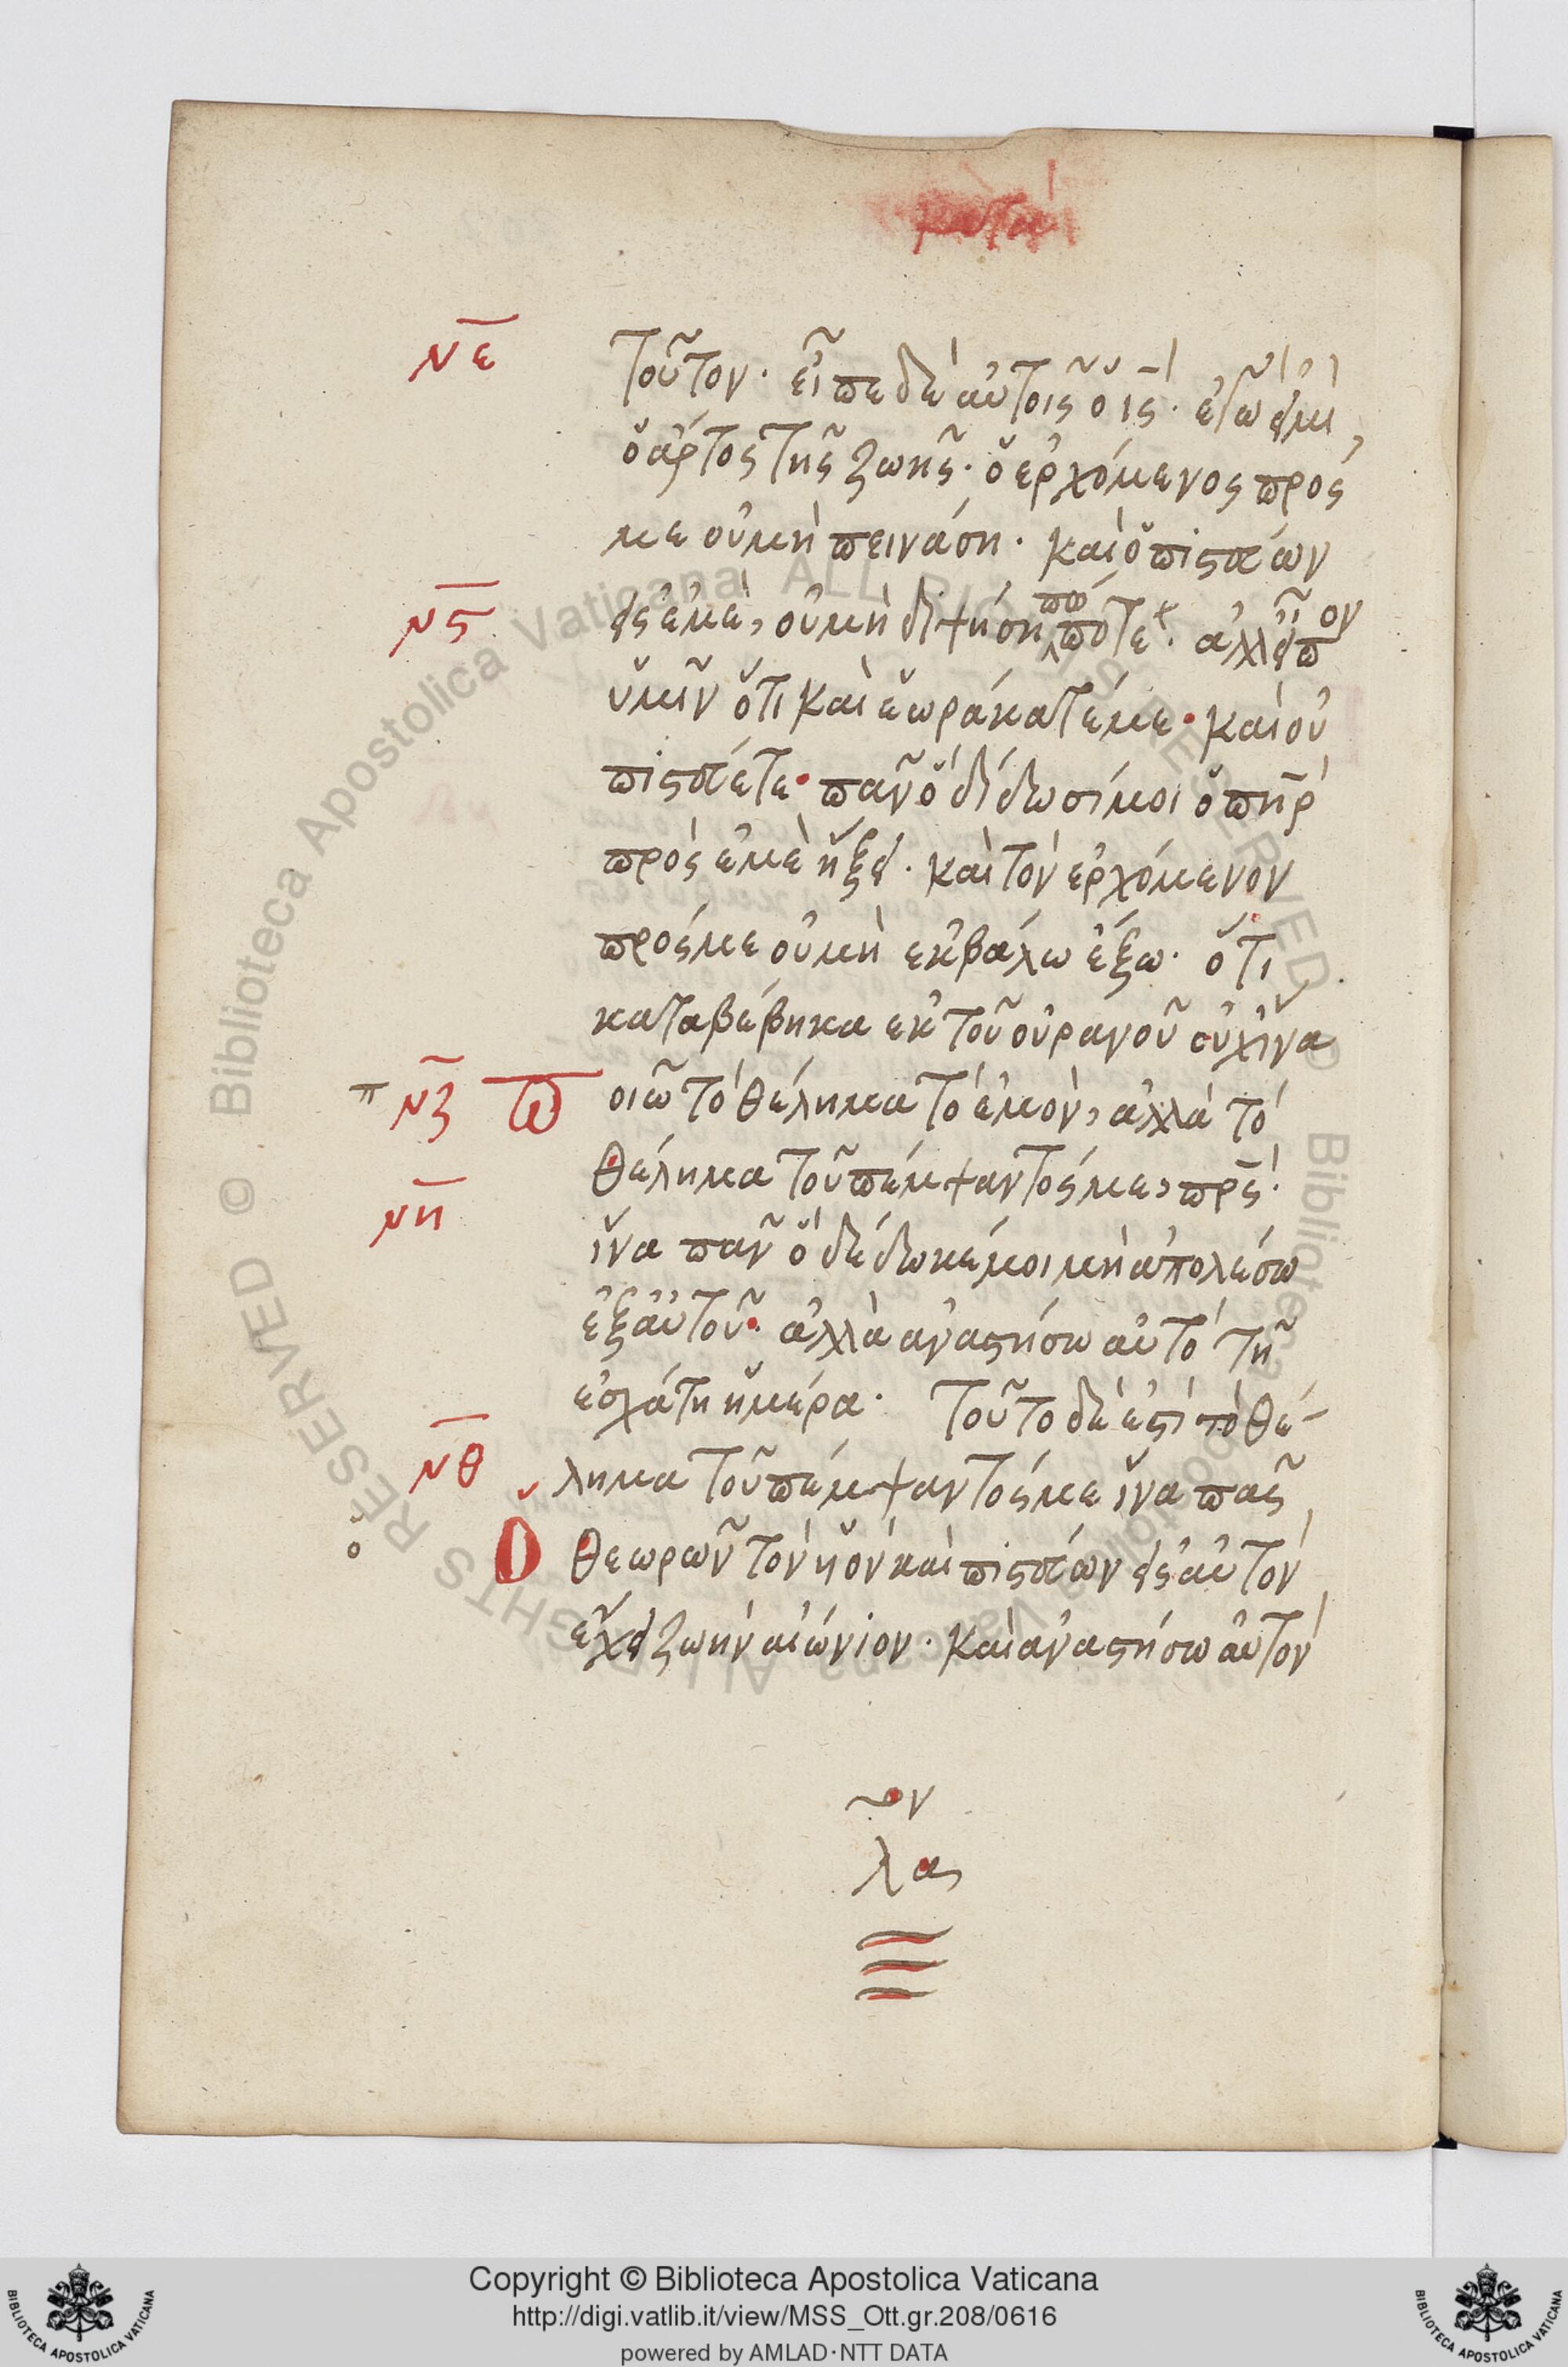 νε
τοῦτον· εἶπε δὲ αὐτοῖς ὁ ῑς̄· ἐγώ εἰμι
ὁ ἄρτος τῆς ζωῆς· ὁ ἐρχόμενος πρός
με οὐ μὴ πεινάση· καὶ ὁ πιστεύων
νς
εἰς ἐμὲ, οὐ μὴ διψήση πώποτε· ἀλλ εἶπον
ὑμῖν ὅτι καὶ ἑωράκατέ με· καὶ οὐ
πιστεύετε· πᾶν ὃ δίδωσί μοι ὁ πηρ
πρὸς ἐμὲ ἥξει· καὶ τὸν ἐρχόμενον
πρός με οὐ μὴ ἐκβάλω ἔξω· ὅτι
καταβέβηκα ἐκ τοῦ οὐρανοῦ οὐχ ἵνα
π νζ π οιῶ τὸ θέλημα τὸ ἐμὸν, ἀλλὰ τὸ
θέλημα τοῦ πέμψαντός με, πρς·
νη
ἵνα πᾶν ὃ δέδωκέ μοι μὴ ἀπολέσω
ἐξ αὐτοῦ· ἀλλὰ ἀναστήσω αὐτὸ τῆ
ἐσχάτη ἡμέρα· τοῦτο δέ ἐστι τὸ θέ-
νθ
λημα τοῦ πέμψαντός με ἵνα πᾶς
ὁ Ο θεωρῶν τὸν ὑὸν καὶ πιστεύων εἰς αὐτὸν
ἔχει ζωὴν αἰώνιον· καὶ ἀναστήσω αὐτὸν
Copyright © Biblioteca Apostolica Vaticana
http://digi.vatlib.it/view/MSS_Ott.gr.208/0616
powered by AMLAD·NTT DATA
BIBLIOTECA APOSTOLICA VATICANA
BIBLIOTECA APOSTOLICA VATICANA
© Biblioteca Apostolica Vaticana ALL RIGHTS RESERVED
© Biblioteca Apostolica Vaticana ALL RIGHTS RESERVED